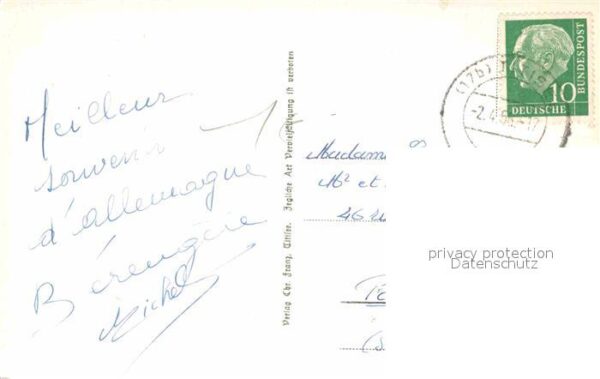 Meilleur
souvenir
d'allemagne
Bérengère
Michel
Verlag Chr. Franz, Tittlsee. Jegliche Art Vervielfältigung ist verboten
Madame
Mr et
DEUTSCHE
BUNDESPOST
10
(17b)
-2.4.5
privacy protection
Datenschutz